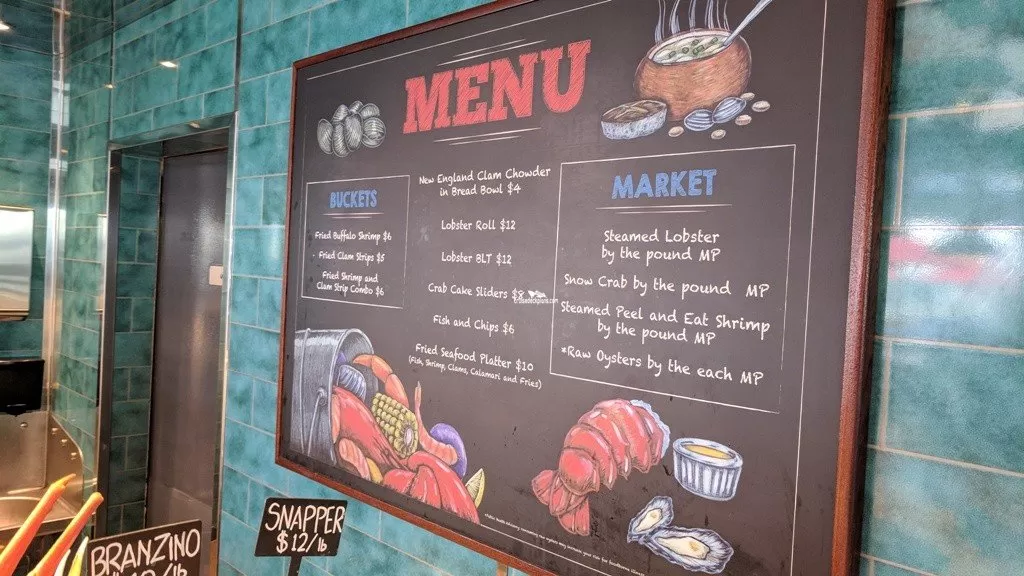 MENU
BUCKETS
Fried Buffalo Shrimp $6
Fried Clam Strips $5
Fried Shrimp and
Clam Strip Combo $6
New England Clam Chowder
in Bread Bowl $4
Lobster Roll $12
Lobster BLT $12
Crab Cake Sliders
Fish and Chips $6
Fried Seafood Platter $10
(Fish, Shrimp, Clams, Calamari and Fries)
MARKET
Steamed Lobster
by the pound MP
Snow Crab by the pound MP
Steamed Peel and Eat Shrimp
by the pound MP
*Raw Oysters by the each MP
SNAPPER
$12/lb
BRANZINO
/lb